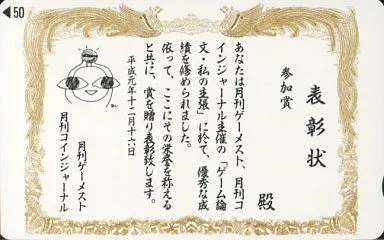 50
表彰状
参加賞
殿
あなたは月刊ゲーメスト、月刊コ
インジャーナル主催の「ゲーム論
文・私の主張」に於て、優秀な成
績を修められました。
依って、ここにその栄誉を称える
と共に、賞を贈り表彰致します。
平成元年十二月十六日
月刊ゲーメスト
月刊コインジャーナル